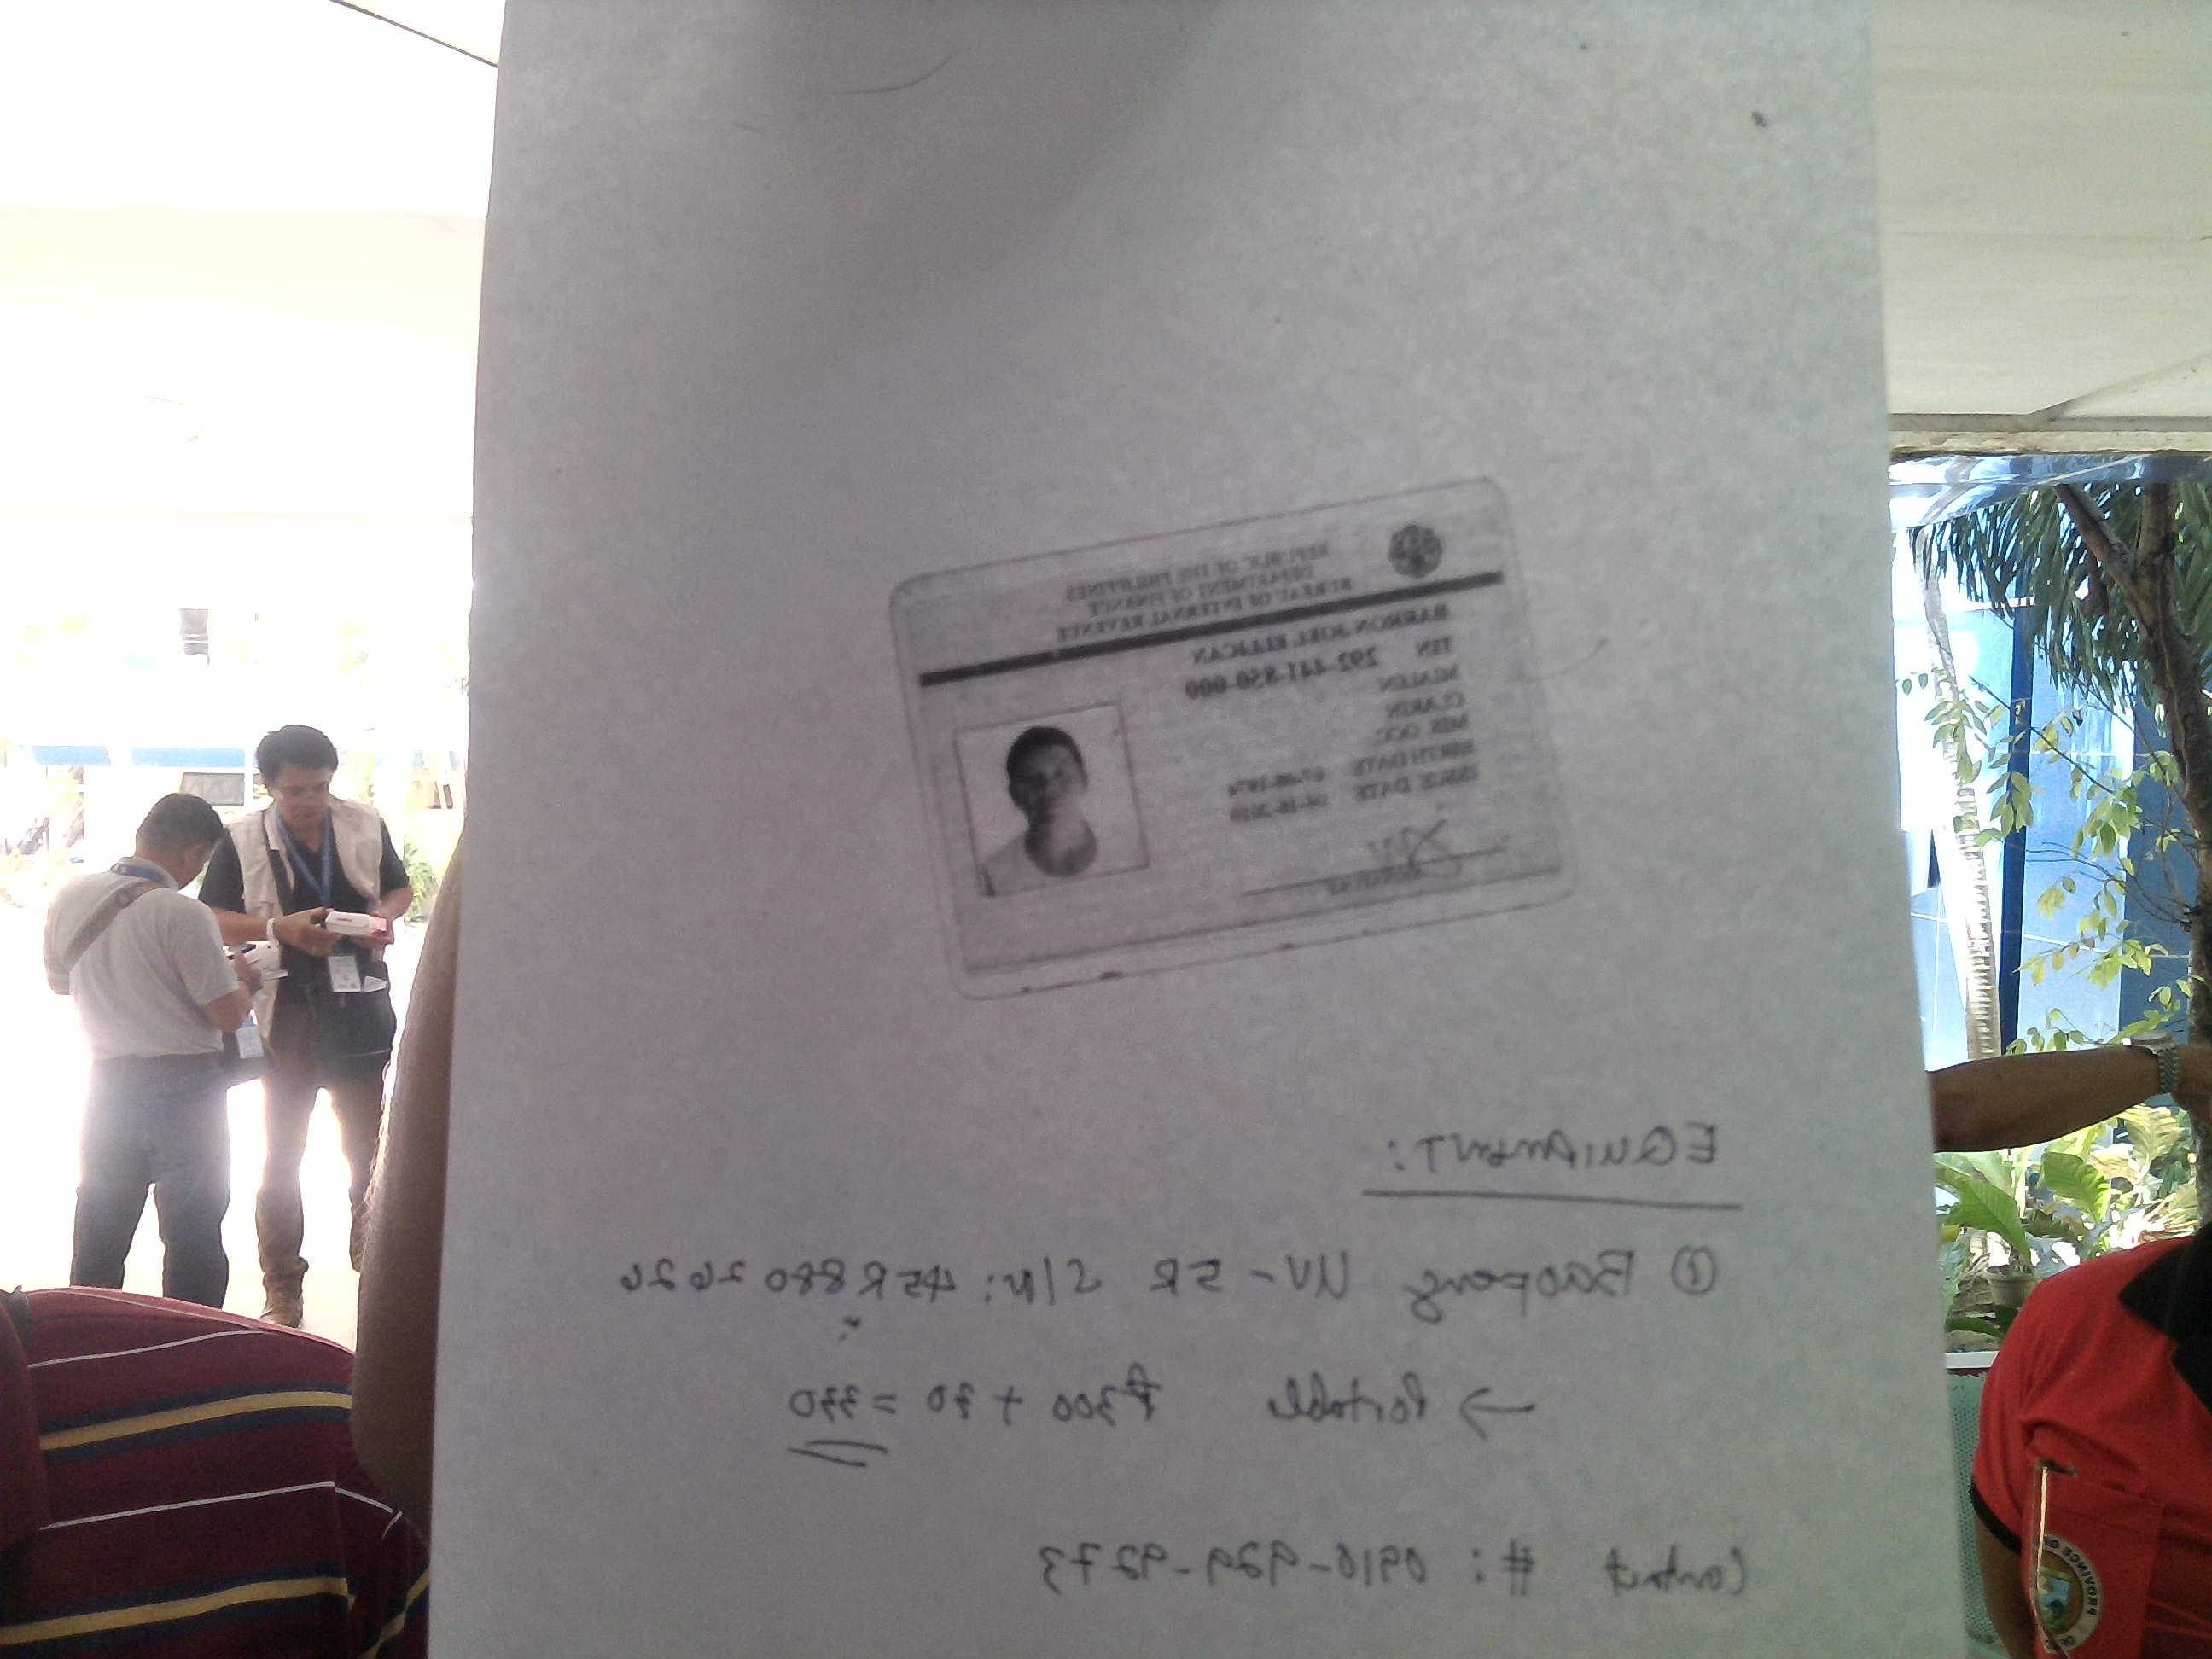 REPUBLIC OF THE PHILIPPINES
DEPARTMENT OF FINANCE
BUREAU OF INTERNAL REVENUE
BARRON JOEL ELLICAN
TIN 292-441-850-000
MIALEN
CLARIN
MIS OCC
BIRTH DATE 07-08-1974
ISSUE DATE 04-16-2010
SIGNATURE
EQUIPMENT:
① Baofeng UV-5R S/N: 45R880 2626
→ Portable ₱300 + 30 = 330
Contact #: 0910-929-9273
PROVINCE OF